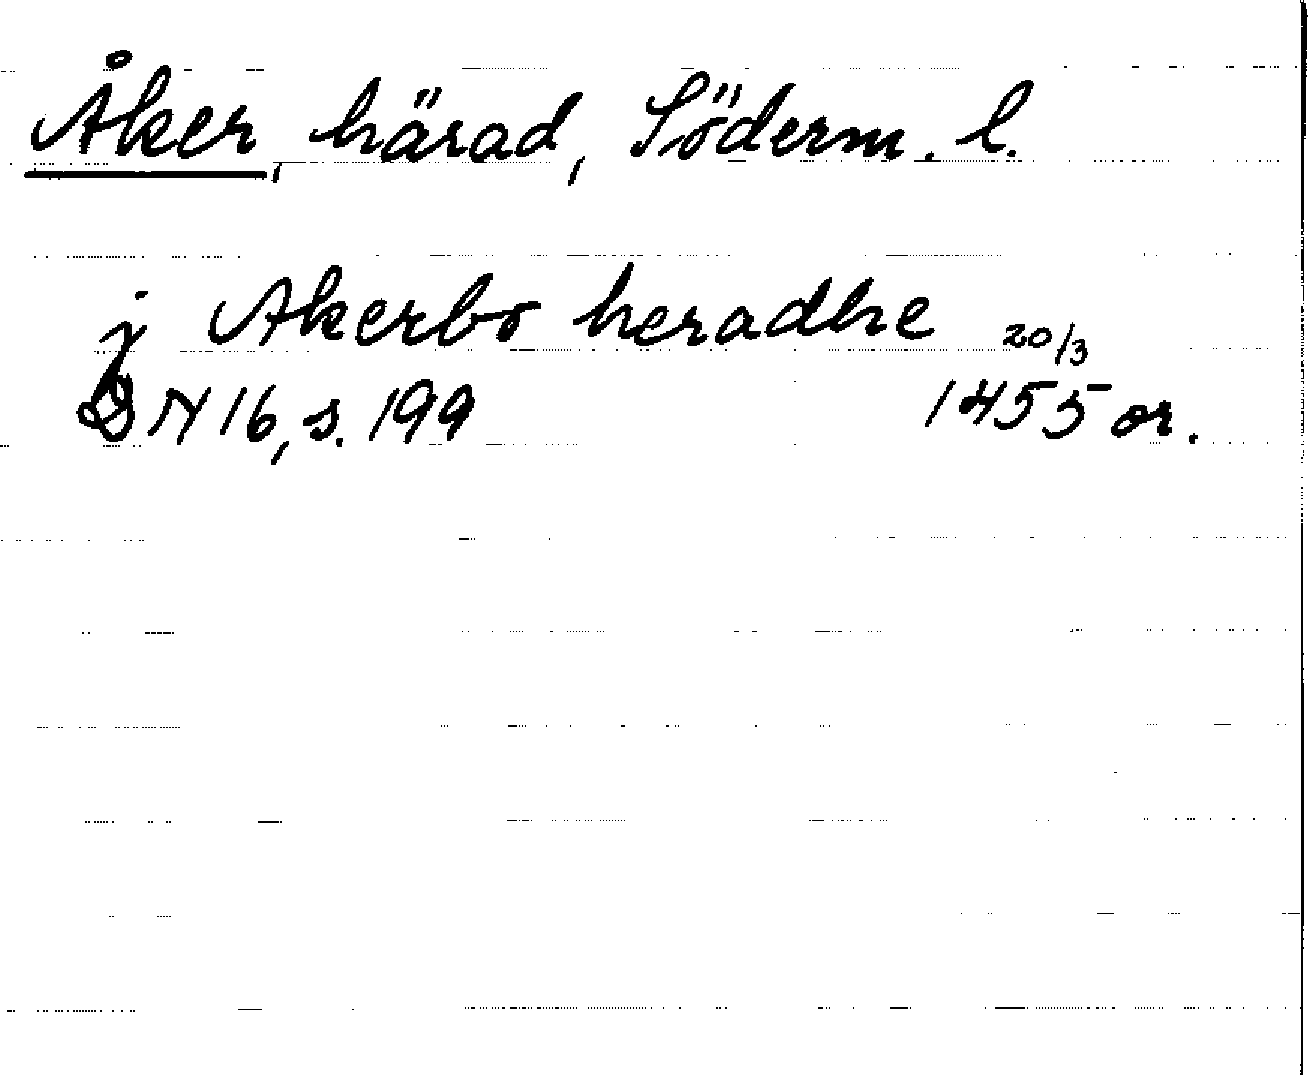 Åker, härad, Söderm. l.
j Akerbo heradhe 20/3
DN 16, s. 199 1455 or.